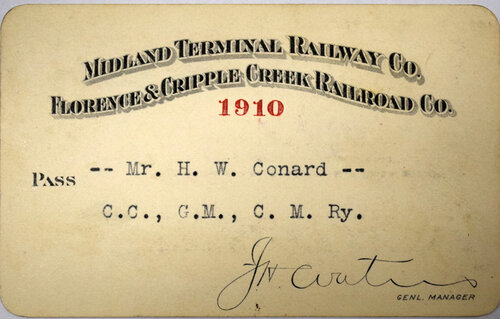 MIDLAND TERMINAL RAILWAY CO.
FLORENCE & CRIPPLE CREEK RAILROAD CO.
1910
PASS -- Mr. H. W. Conard --
C.C., G.M., C. M. Ry.
GENL. MANAGER